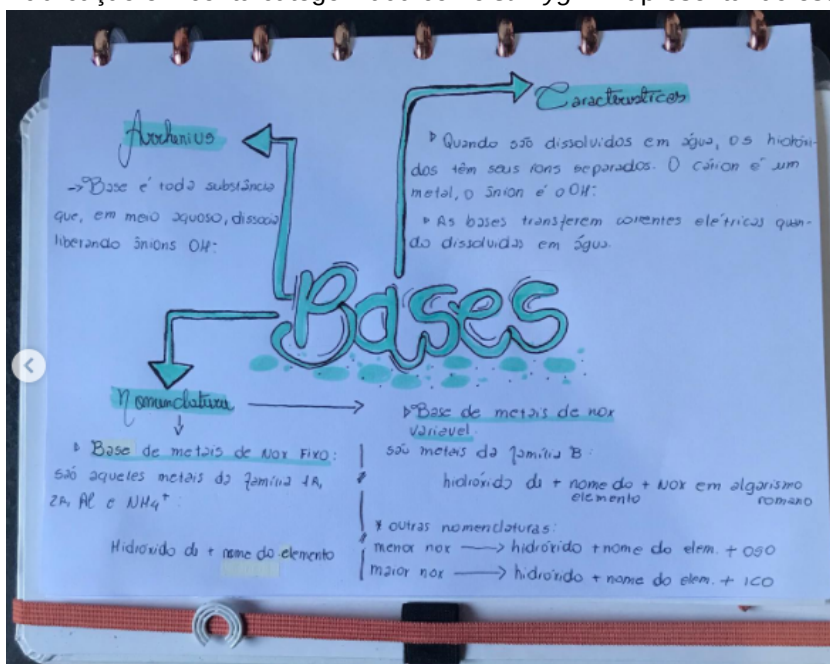 Bases
Arrhenius
→ Base é toda substância
que, em meio aquoso, dissocia
liberando ânions OH-
Características
Quando são dissolvidos em água, os hidróxi-
dos têm seus íons separados. O cátion é um
metal, o ânion é o OH-
As bases transferem correntes elétricas quan-
do dissolvidas em água.
Nomenclatura
Base de metais de Nox Fixo:
são aqueles metais da família 1A,
2A, Al e NH4+
Hidróxido de + nome do elemento
Base de metais de nox
variavel.
são metais da família B:
hidróxido de + nome do + Nox em algarismo
elemento romano
* outras nomenclaturas:
menor nox → hidróxido + nome do elem. + OSO
maior nox → hidróxido + nome do elem. + ICO